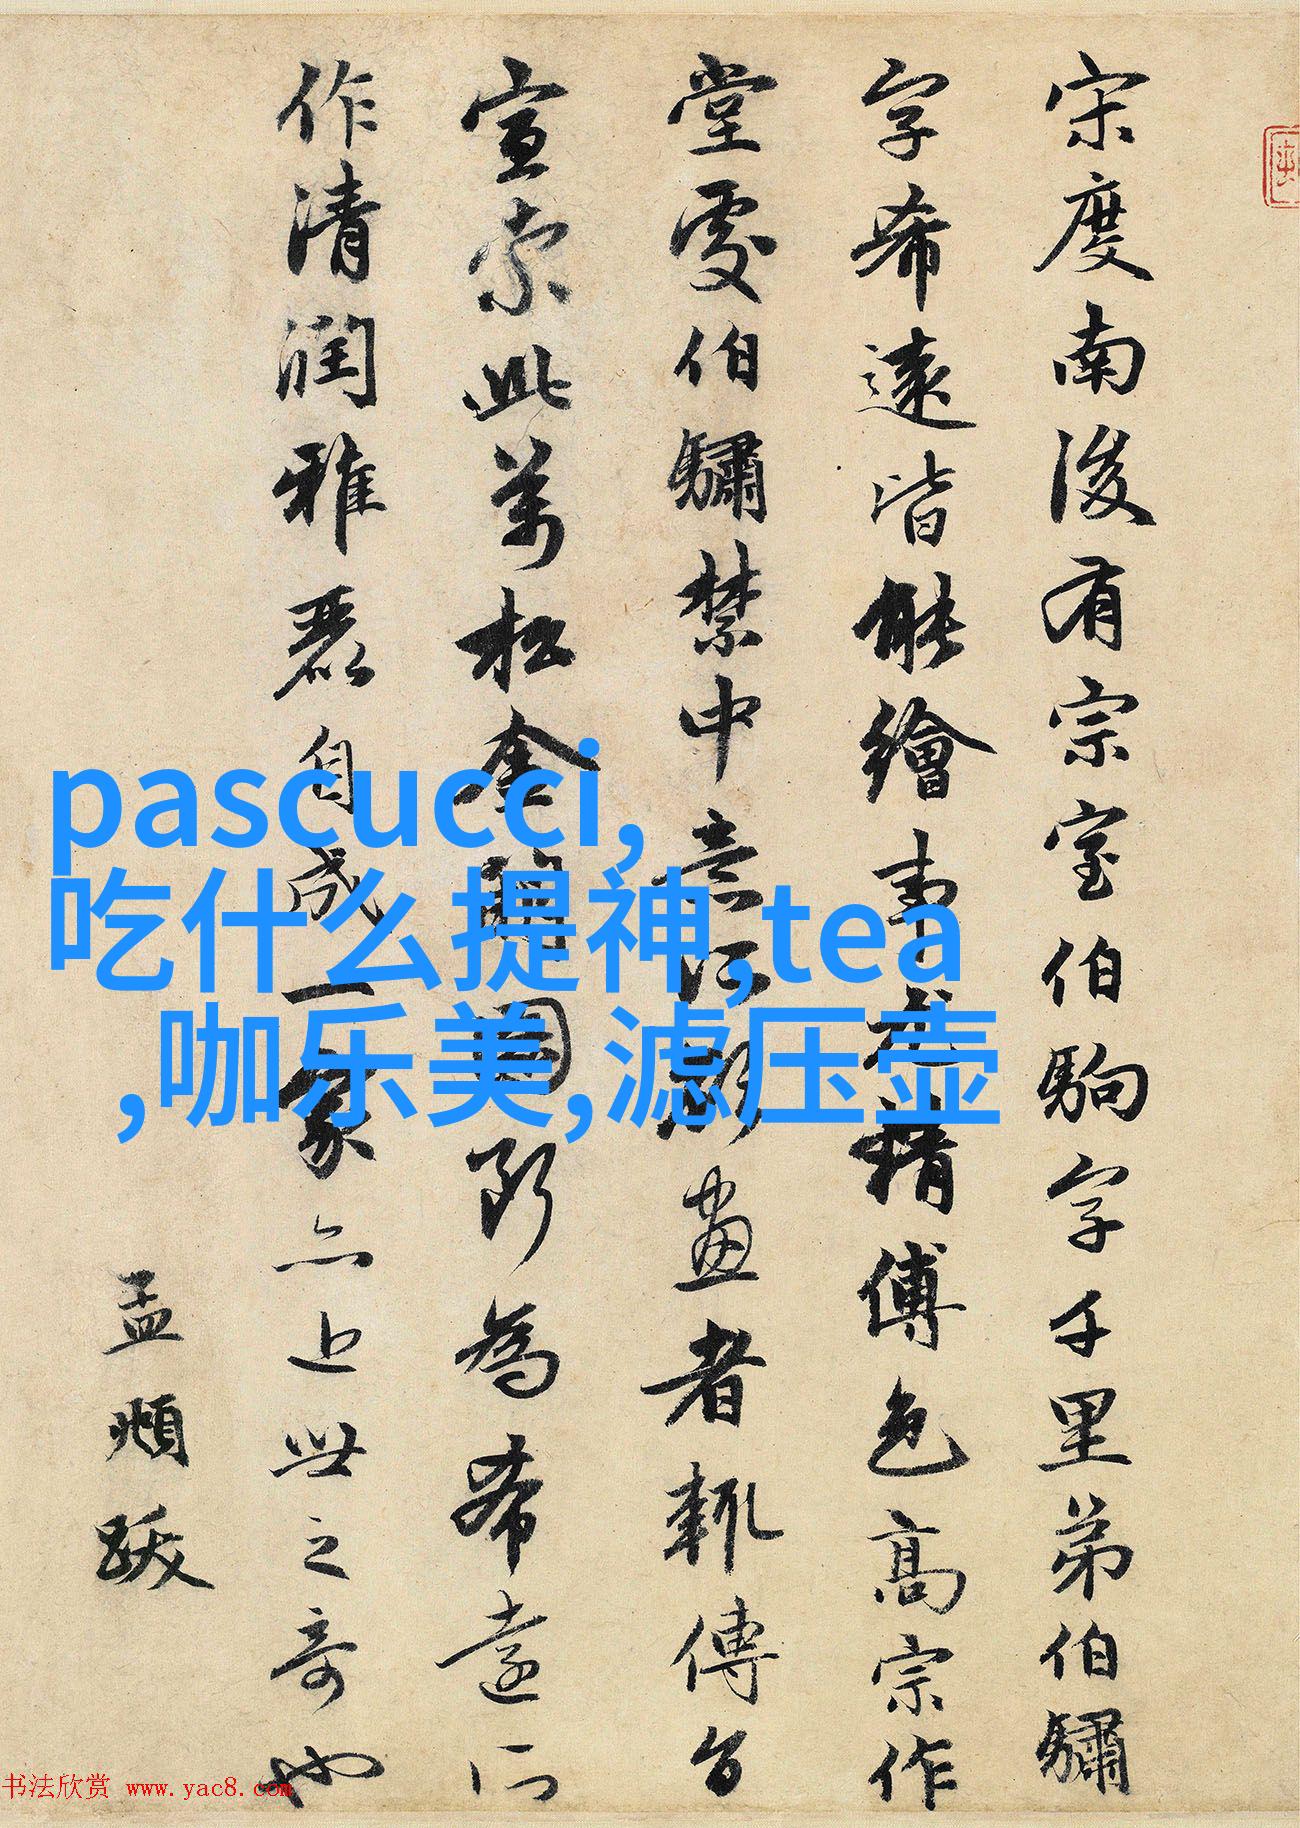 宋度南後有宗室伯駒字千里弟伯驌
字希遠皆能繪事尤精傅色高宗作
堂處伯驌禁中意所欲畫者輒傳旨
宣索此萬松金闕圖所為希遠所
作清潤雅麗自成一家亦近世之奇也
孟頫跋
pascucci,
吃什么提神,tea
,咖乐美,滤压壶
书法欣赏 www.yac8.com